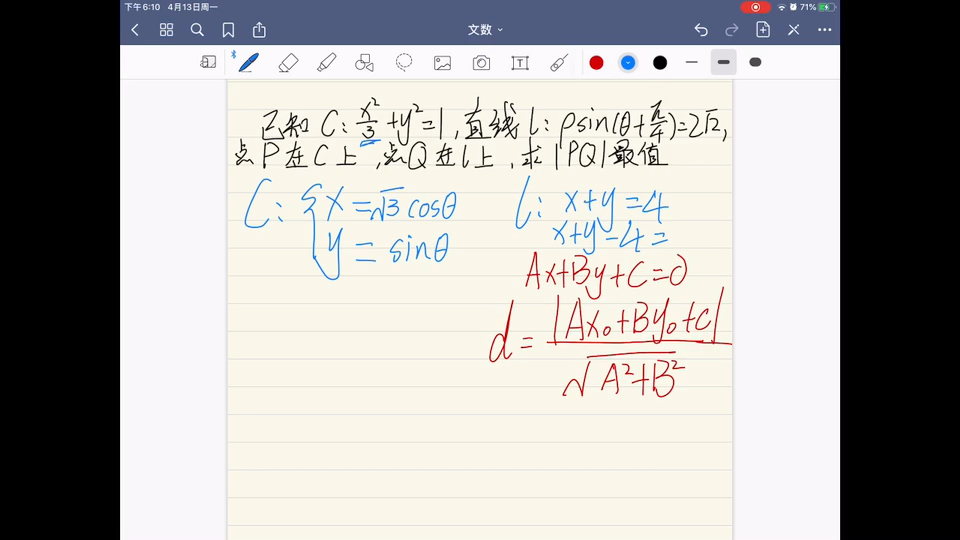 下午6:10 4月13日周一
71%
文数
已知 C: x²/3 + y² = 1, 直线 l: ρsin(θ + π/4) = 2√2,
点P在C上, 点Q在l上, 求|PQ|最值
C: { x = √3 cosθ
y = sinθ
l: x+y=4
x+y-4=
Ax+By+C=0
d = |Ax₀+By₀+C| / √(A²+B²)